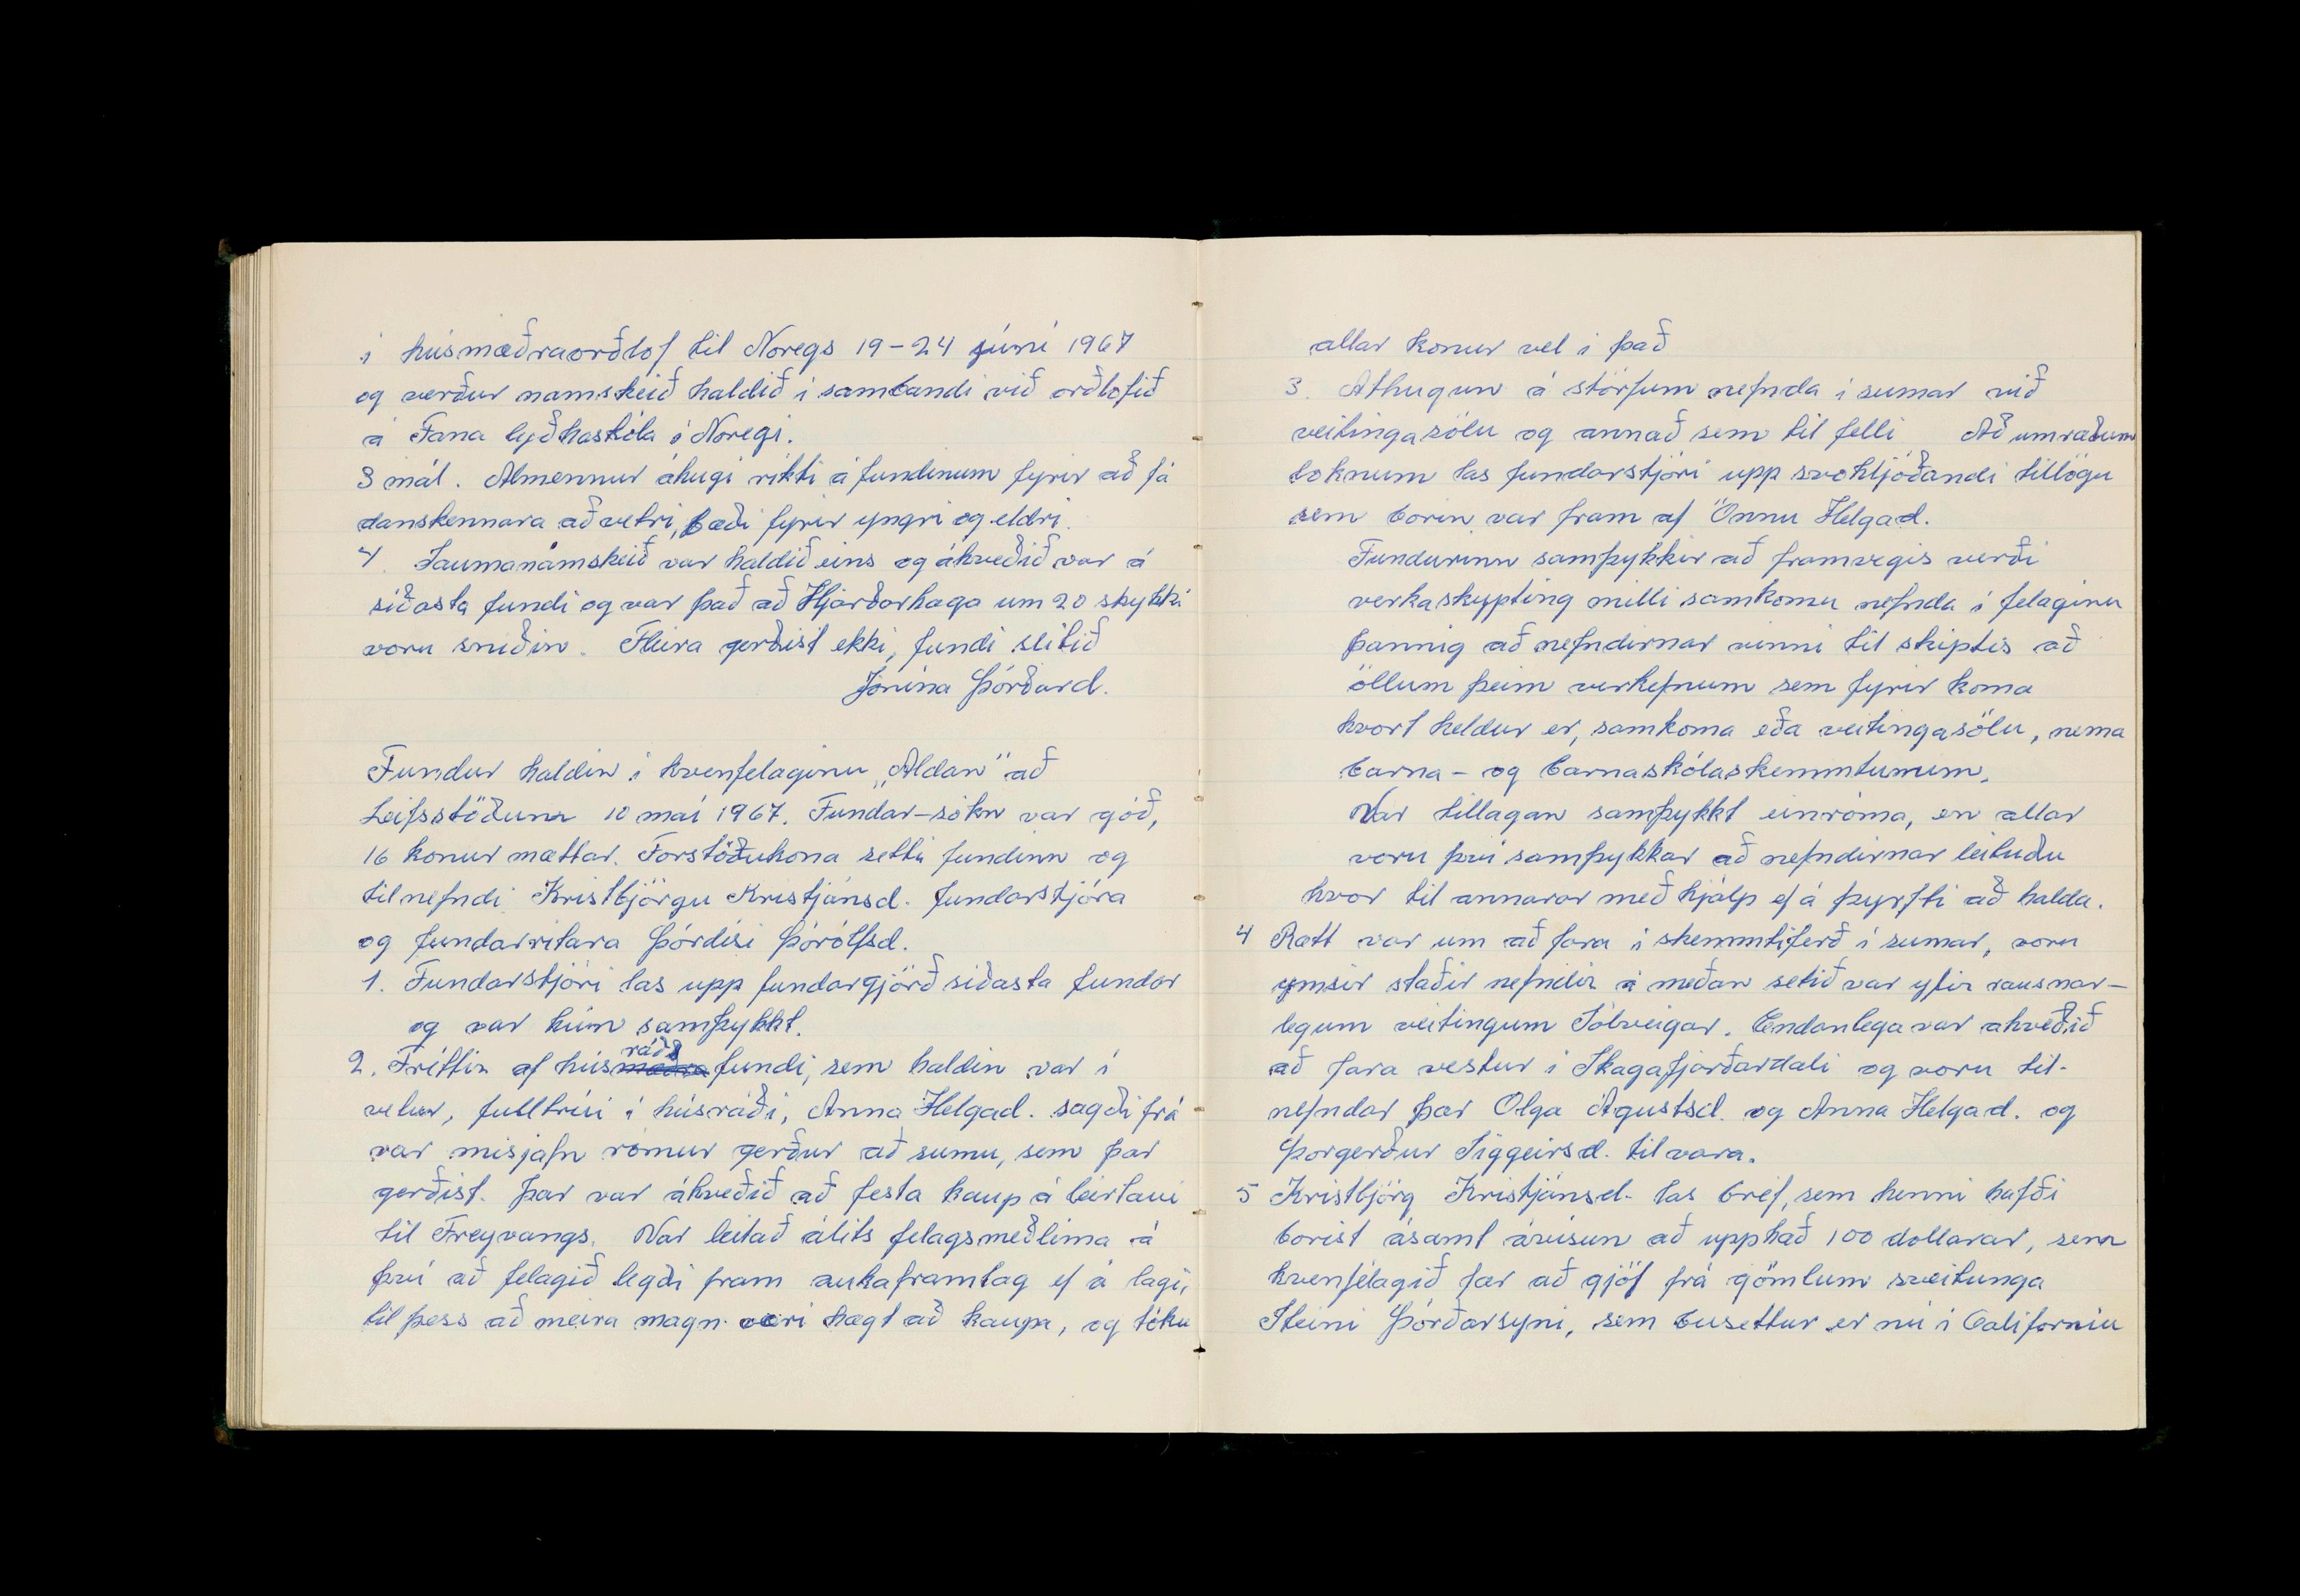 í húsmæðraorðlof til Noregs 19-24 júní 1967
og verður namskeið haldið í sambandi við orðlofið
á Fana lyðhaskóla í Noregi.
3 mál. Almennur áhugi ríkti á fundinum fyrir að fá
danskennara að vetri, bæði fyrir yngri og eldri.
4. Saumanámskeið var haldið eins og ákveðið var á
siðasta fundi og var það að Hjarðarhaga um 20 stykki
voru sniðin. Fleira gerðist ekki, fundi slitið
Jónína Þórðard.
Fundur haldin í kvenfelaginu „Aldan" að
Leifsstöðum 10 maí 1967. Fundar-sókn var góð,
16 konur mættar. Forstöðukona setti fundinn og
tilnefndi Kristbjörgu Kristjánsd. fundarstjóra
og fundarritara Þórdísi Þórólfsd.
1. Fundarstjóri las upp fundargjörð síðasta fundar
og var hún samþykkt.
2. Fréttir af húsráðs fundi, sem haldin var í
vetur, fulltrúi í húsráði, Anna Helgad. sagði frá
var misjafn rómur gerður að sumu, sem þar
gerðist. Þar var ákveðið að festa kaup á leirtaui
til Freyvangs. Var leitað álits felagsmeðlima á
því að felagið legði fram aukaframlag ef á lægi,
til þess að meira magn væri hægt að kaupa, og tóku
allar konur vel í það
3. Athugun á störfum nefnda í sumar við
veitingasölu og annað sem til felli Að umræðum
loknum las fundarstjóri upp svohljóðandi tillögu
sem borin var fram af Önnu Helgad.
Fundurinn samþykkir að framvegis verði
verkaskypting milli samkomu nefnda í felaginu
þannig að nefndirnar vinni til skiptis að
öllum þeim verkefnum sem fyrir koma
hvort heldur er, samkoma eða veitingasölu, nema
barna- og barnaskólaskemmtunum.
Var tillagan samþykkt einróma, en allar
voru því samþykkar að nefndirnar leituðu
hvor til annarar með hjálp ef á þyrfti að halda.
4 Rætt var um að fara í skemmtiferð í sumar, voru
ymsir staðir nefndir á meðan setið var yfir rausnar-
legum veitingum Sólveigar. Endanlega var akveðið
að fara vestur í Skagafjarðardali og voru til-
nefndar þær Olga Ágústsd. og Anna Helgad. og
Þorgerður Siggeirsd. til vara.
5 Kristbjörg Kristjánsd. las bréf, sem henni hafði
borist ásamt ávísun að upphæð 100 dollarar, sem
kvenfélagið fær að gjöf frá gömlum sveitunga
Steini Þórðarsyni, sem busettur er nú í Californiu